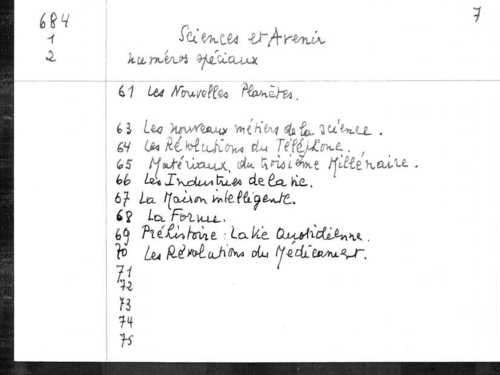 684
1
2
7
Sciences et Avenir
numéros spéciaux
61 Les Nouvelles Planètes.
63 Les nouveaux métiers de la science.
64 Les Révolutions du Téléphone.
65 Matériaux du troisième Millénaire.
66 Les Industries de la vie.
67 La Maison intelligente.
68 La Forme.
69 Préhistoire : La Vie Quotidienne.
70 Les Révolutions du Médicament.
71
72
73
74
75